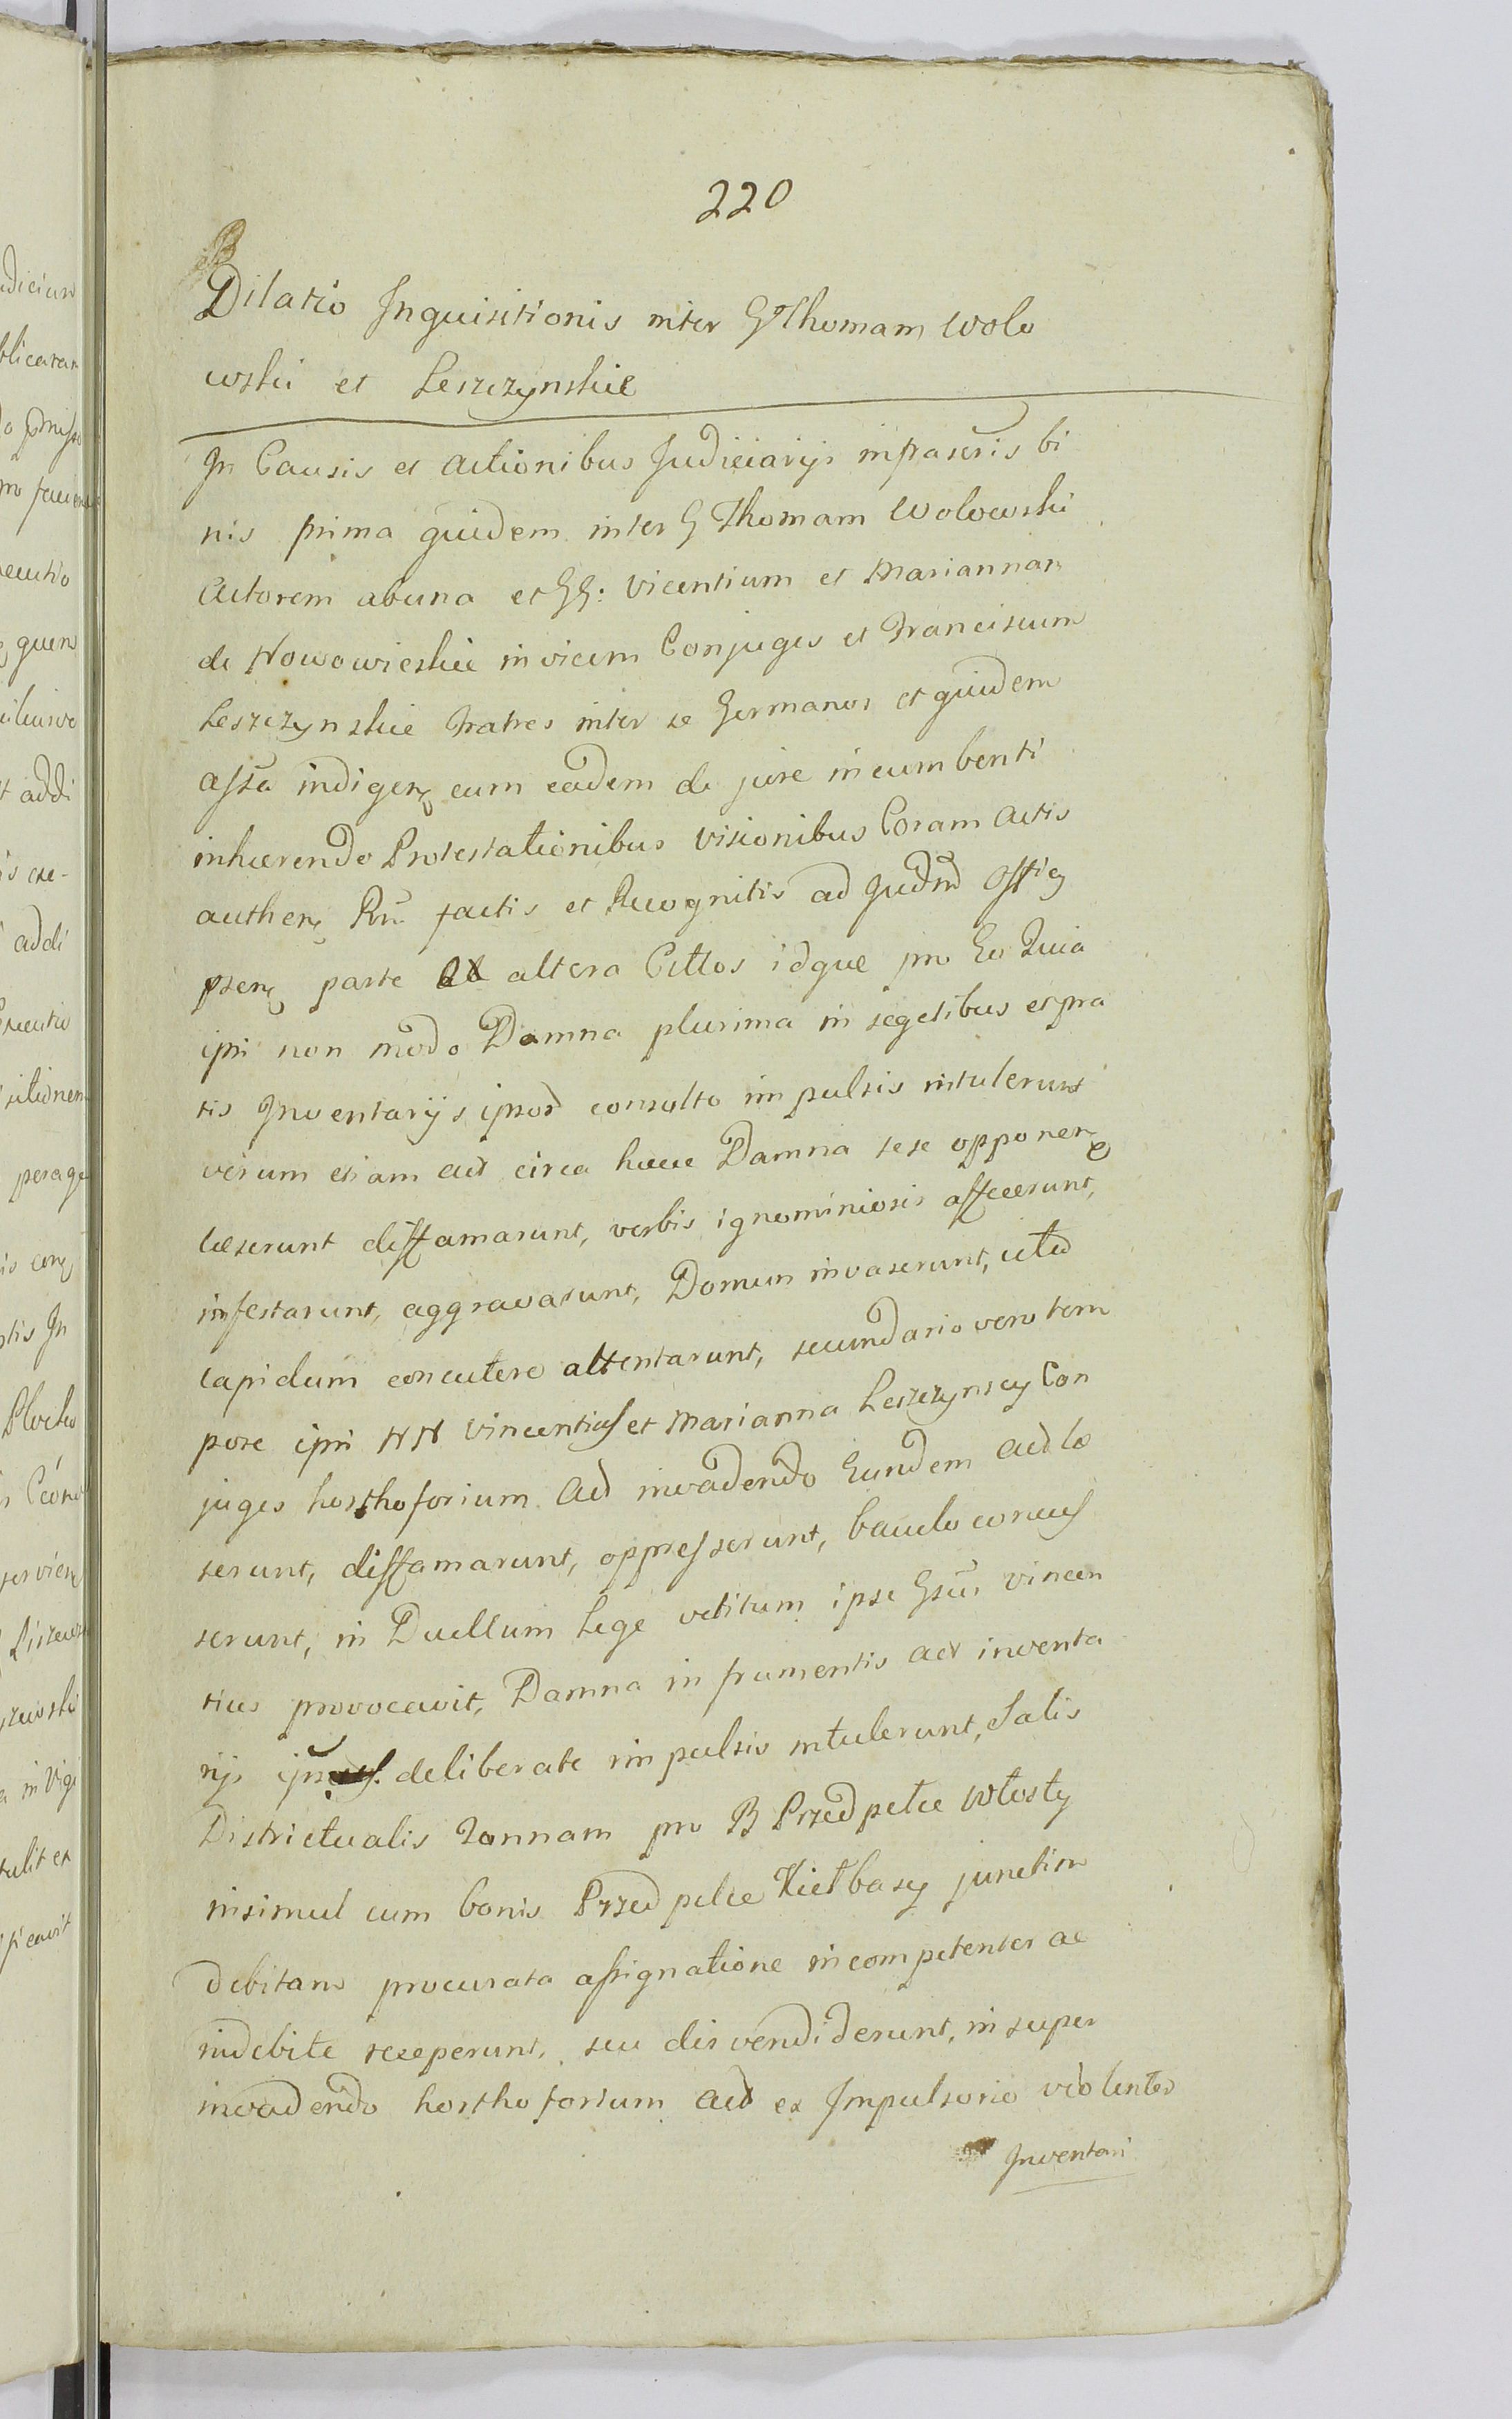 220
Dilatio Inquisitionis inter G Thomam Wolo
wski et Leszczynskie
In Causis et Actionibus Judiciarijs infrascris bi
nis prima quidem inter G Thomam Wolowski
Actorem abuna et GG: Vicentium et Mariannam
de Nowowieskie invicem Conjuges et Franciscum
Leszczynskie Fratres inter se Germanos et quidem
assa indigen eum eadem de jure incumbenti
inhærendo Protestationibus Visionibus Coram Actis
authen Rn factis et Recognitis ad Judm Offi
psen parte ab altera Cittos idque pro Eo Quia
ipsi non modo Damna plurima in segetibus et pra
tis Inventarijs ipsor consulto impulsis intulerunt
verum etiam Act circa hæce Damna sese opponen
læserunt diffamarunt, verbis ignominiosis affecerunt,
infestarunt, aggravarunt, Domum invaserunt, ictu
lapidum concutere attentarunt, secundario vero tem
pore ipsi NN Vincentius et Marianna Leszczynscy Con
juges horthoforium Act invadendo Eundem Act læ
serunt, diffamarunt, oppresserunt, baculo concus
serunt, in Duellum Lege vetitum ipse Gsus Vincen
tius provocavit, Damna in frumentis Act inventa
rijs deliberate impulsis intulerunt, Salis
Districtualis Tonnam pro B Przedpełce Włosty
insimul cum bonis Przedpełce Kiełbasy junctim
debitam procurata assignatione incompetenter ac
indebite receperunt, seu disvendiderunt, insuper
invadendo horthoforium Act ex Impulsorio violenter
Inventari